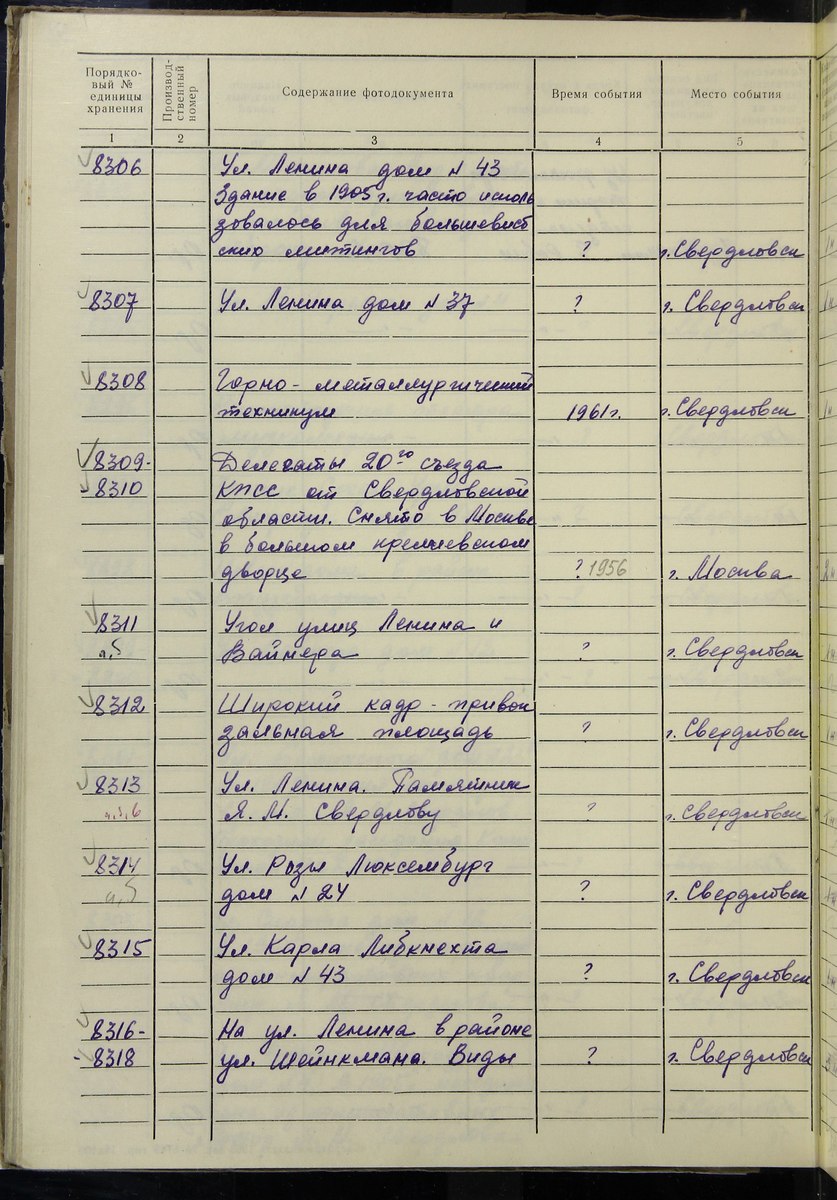 Порядко-
вый №
единицы
хранения
Производ-
ственный
номер
Содержание фотодокумента
Время события
Место события
1 2 3 4 5
8306 Ул. Ленина дом № 43
Здание в 1905 г. часто исполь
зовалось для большевист
ских митингов ? г. Свердловск
8307 Ул. Ленина дом № 37 ? г. Свердловск
8308 Горно-металлургический
техникум 1961 г. г. Свердловск
8309- Делегаты 20го съезда
8310 КПСС от Свердловской
области. Снято в Москве
в большом кремлевском
дворце ? 1956 г. Москва
8311 Угол улиц Ленина и
а,б Вайнера ? г. Свердловск
8312 Широкий кадр - привок
зальная площадь ? г. Свердловск
8313 Ул. Ленина. Памятник
Я. М. Свердлову ? г. Свердловск
8314 Ул. Розы Люксембург
а,б дом № 24 ? г. Свердловск
8315 Ул. Карла Либкнехта
дом № 43 ? г. Свердловск
8316- На ул. Ленина в районе
8318 ул. Шейнкмана. Виды ? г. Свердловск